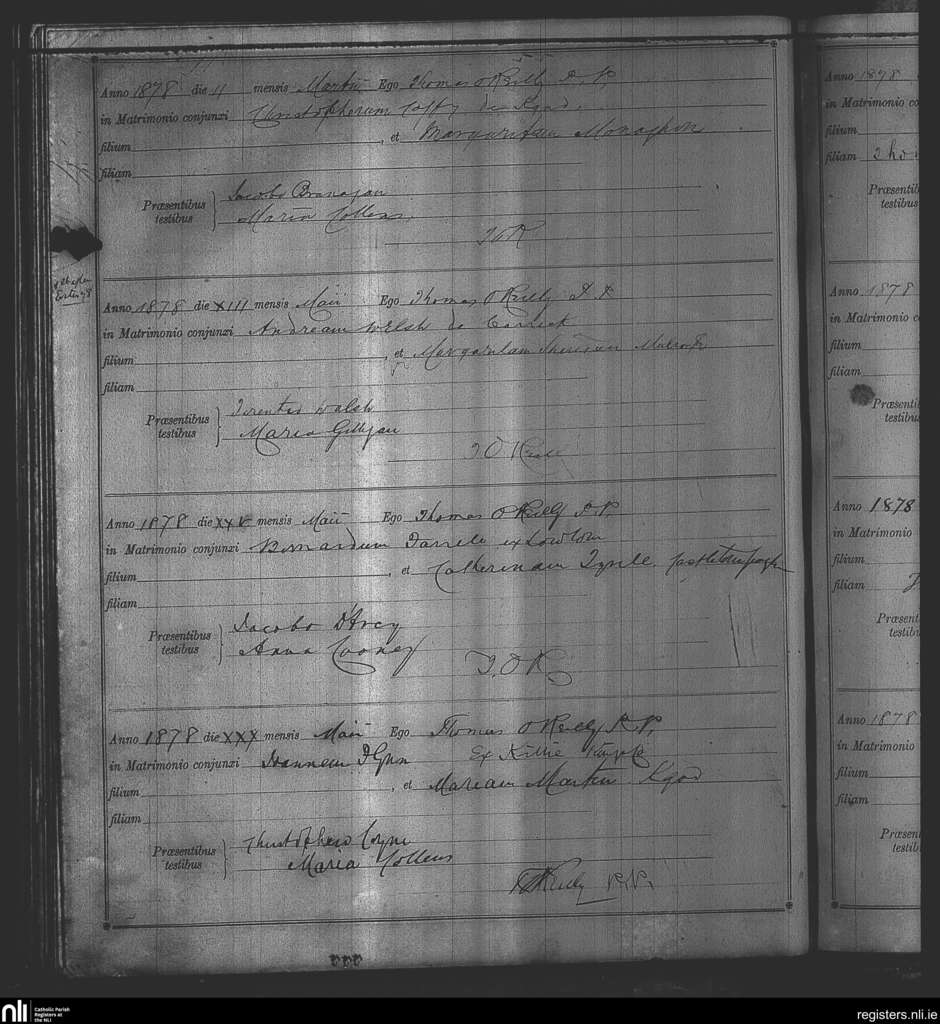 Anno 1878 die 11 mensis Martii Ego Thomas O'Reilly P.P.
in Matrimonio conjunxi Christopherum Coffy de
filium , et Margaritam Monaghan
filiam
Præsentibus testibus Jacobo Branagan
Maria Collens
TOR
Anno 1878 die XIII mensis Maii Ego Thomas O Reilly P.P
in Matrimonio conjunxi Andream Welsh de Carrick
filium , et Margaritam Sheridan
filiam
Præsentibus testibus Terentio Walsh
Maria Gilligan
T O Reill
Anno 1878 die XXV mensis Maii Ego Thomas O Reilly P.P
in Matrimonio conjunxi Bernardum Farrele ex
filium , et Catherinam Tyrele
filiam
Præsentibus testibus Jacobo D'Arcy
Anna Cooney
T.O.R
Anno 1878 die XXX mensis Maii Ego Thomas O Reilly P.P.
in Matrimonio conjunxi Joannem Flynn Ex
filium , et Mariam Martin
filiam
Præsentibus testibus Christophero Coyne
Maria Collens
O'Reilly P.P.
Anno 1878
in Matrimonio co
filium
filiam
Præsentib
testibus
Anno 1878
in Matrimonio c
filium
filiam
Præsenti
testibus
Anno 1878
in Matrimonio
filium
filiam
Præsent
testib
Anno 1878
in Matrimonio
filium
filiam
Præsen
testib
nli Catholic Parish
Registers at
the NLI
registers.nli.ie